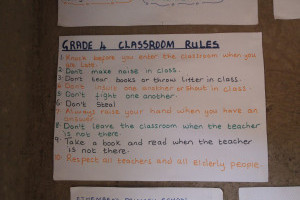 GRADE 4 CLASSROOM RULES
1 Knock before you enter the classroom when you
are late.
2. Don't make noise in class.
3. Don't tear books or throw litter in class.
4. Dont insult one another or shout in class.
5. Don't fight one another.
6 Don't Steal
7. Always raise your hand when you have an
answer.
8. Don't leave the classroom when the teacher
is not there.
9. Take a book and read when the teacher
is not there.
10. Respect all teachers and all Elderly people.
PRIMARY SCHOOL